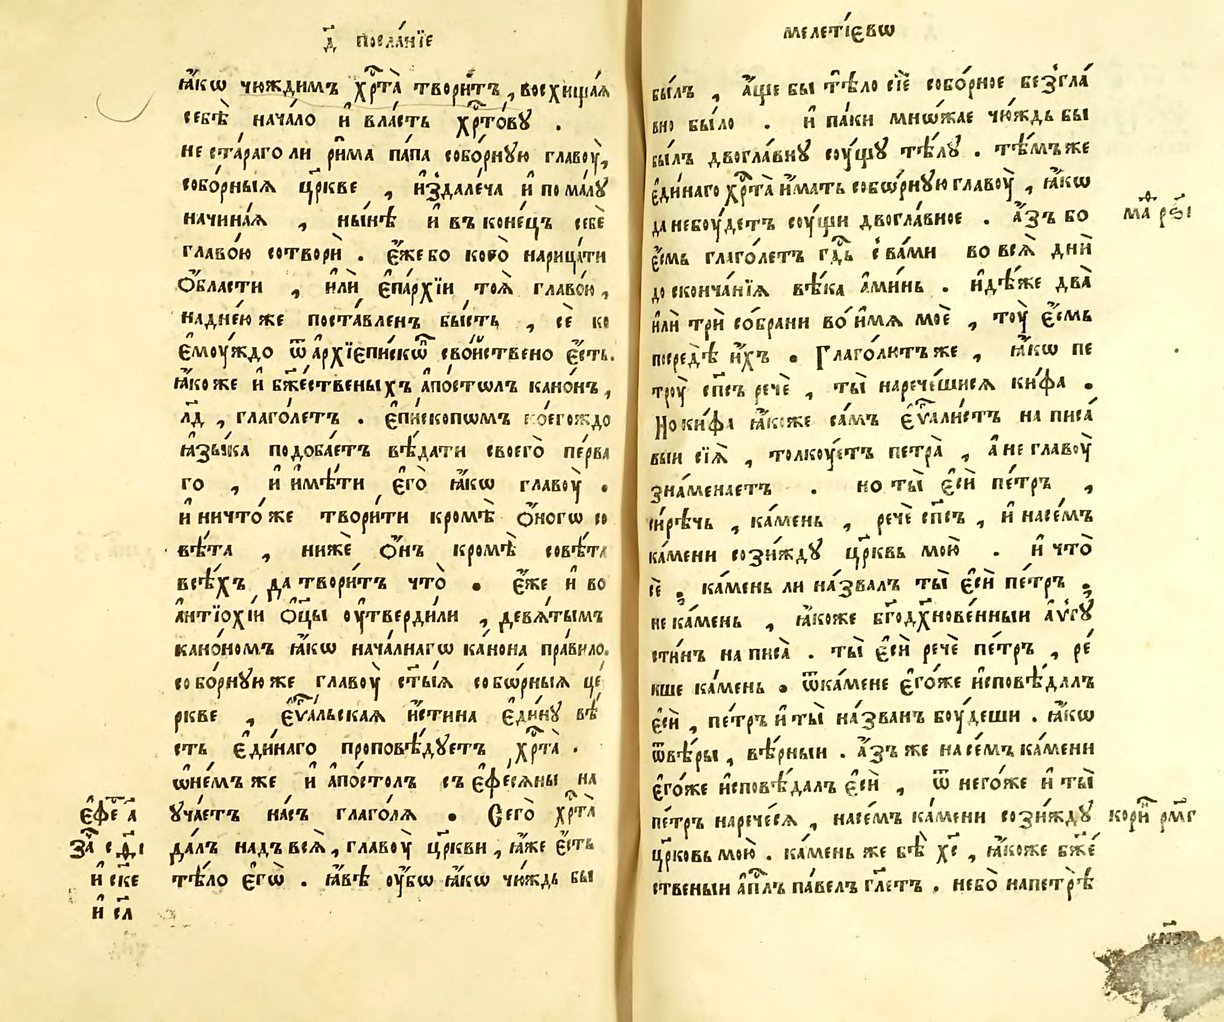 д҃ посла́нїе
ꙗ҆́кѡ чю́ждимъ хрⷭ҇та̀ твори́тъ, восхища́ѧ
себѣ̀ нача́ло и҆ вла́сть хрⷭ҇то́вꙋ .
не ста́раго ли ри́ма па́па собо́рнꙋю главоу̀,
собо́рныѧ цр҃кве , и҆здале́ча и҆ пома́лꙋ
начина́ѧ , ны́нѣ и҆ въ коне́цъ себѐ
главо́ю сотвори̂ . є҆́же бо кого̀ нарица́ти
ѻ҆́бласти , и҆лѝ є҆па́рхїи тоѧ̀ главо́ю,
надне́ю же поста́вленъ бы́сть , сѐ ко
є҆моу́ждо ѿ а҆рхїєпи́скѡⷫ҇ сво́йствено є҆́сть.
ꙗ҆́коже и҆ бж҃е́ственыхъ а҆по́стѡлъ кано́нъ,
л҃д , глаго́летъ . є҆пи́скопѡмъ коегождо
ꙗ҆зы́ка подоба́етъ вѣ́дати своего̀ пе́рва
го , и҆ и҆мѣ́ти є҆го̀ ꙗ҆́кѡ главоу̀ .
и҆ ничто́же твори́ти кромѣ̀ ѻ҆́ногѡ со
вѣ́та , нижѐ ѻ҆́нъ кромѣ̀ совѣ́та
всѣ́хъ да твори́тъ что̀ . є҆́же и҆ во
а҆нтїохі́и ѻ҆ц҃ы оу҆тверди́ли , девѧ́тымъ
кано́номъ ꙗ҆́кѡ нача́лнагѡ кано́на пра́вило.
собо́рнꙋю же главоу̀ ст҃ы́ѧ собѡ́рныѧ це́
ркве , є҆ѵⷢ҇а́льскаѧ и҆́стина є҆ди́нꙋ вѣ́
сть є҆ди́наго проповѣ́дꙋетъ хрⷭ҇та̀ .
ѡ҆не́мъ же и҆ а҆по́столъ съ є҆фесѧ́ны на
ꙋча́етъ на́съ глаго́лѧ . Сего̀ хрⷭ҇та̀
да́лъ надъ всѧ̀, главоу̀ цр҃кви , ꙗ҆́же є҆́сть
тѣ́ло є҆гѡ̀ . ꙗ҆́вѣ оу҆́бѡ ꙗ҆́кѡ чю́ждь бы
є҆феⷭ҇ а҃
и҆ с҃ке
и҆ с҃л
мелеті́євѡ
бы́лъ , а҆́ще бы тѣ́ло сїѐ собо́рное безгла́
вно бы́ло . и҆ па́ки мнѡ́жае чю́ждь бы
бы́лъ двогла́внꙋ соу́щꙋ тѣ́лꙋ . тѣ́мъ же
є҆ди́наго хрⷭ҇та̀ и҆́мать собѡ́рнꙋю главоу̀ , ꙗ҆́кѡ
да небоу́детъ соу́щи двогла́вное . а҆́зъ бо
є҆́смь глаго́летъ гдⷭ҇ь с ва́ми во всѧ̀ днѝ
до сконча́нїѧ вѣ́ка а҆ми́нь . и҆дѣ́же два̀
и҆лѝ трѝ со́брани во и҆́мѧ моѐ , тоу̀ є҆́смь
посредѣ̀ и҆́хъ . Глаго́литъ же , ꙗ҆́кѡ пе
троу̀ сп҃съ речѐ , ты̀ нарече́шисѧ ки́фа .
Но ки́фа ꙗ҆́коже са́мъ є҆ѵⷢ҇али́стъ написа́
выи сїѧ̀ , толкоу́етъ петра̀ , а҆ не главоу̀
зна́менаетъ . но ты̀ є҆сѝ пе́тръ ,
си́рѣчь , ка́мень , речѐ сп҃съ , и҆ насе́мъ
ка́мени сози́ждꙋ цр҃квь мою̀ . и҆ что̀
сѐ . ка́мень ли на́звалъ ты̀ є҆сѝ пе́тръ ,
не ка́мень , ꙗ҆́коже бг҃одх҃нове́нныи а҆́ѵгꙋ
сти́нъ написа̀ . ты̀ є҆сѝ речѐ пе́тръ , ре́
кше ка́мень . ѿ ка́мене є҆го́же и҆сповѣ́далъ
є҆сѝ , пе́тръ и҆ ты̀ на́званъ боу́деши . ꙗ҆́кѡ
ѿ вѣ́ры , вѣ́рныи . а҆́зъ же насе́мъ ка́мени
є҆го́же и҆сповѣ́далъ є҆сѝ , ѿ него́же и҆ ты̀
пе́тръ нарече́сѧ , насе́мъ ка́мени сози́ждꙋ
цр҃ковь мою̀ . ка́мень же бѣ̀ хс҃ , ꙗ҆́коже бж҃е́
ственыи а҆пⷭ҇лъ па́велъ гл҃етъ . небо̀ напетрѣ̀
корⷩ҇и рм҃г